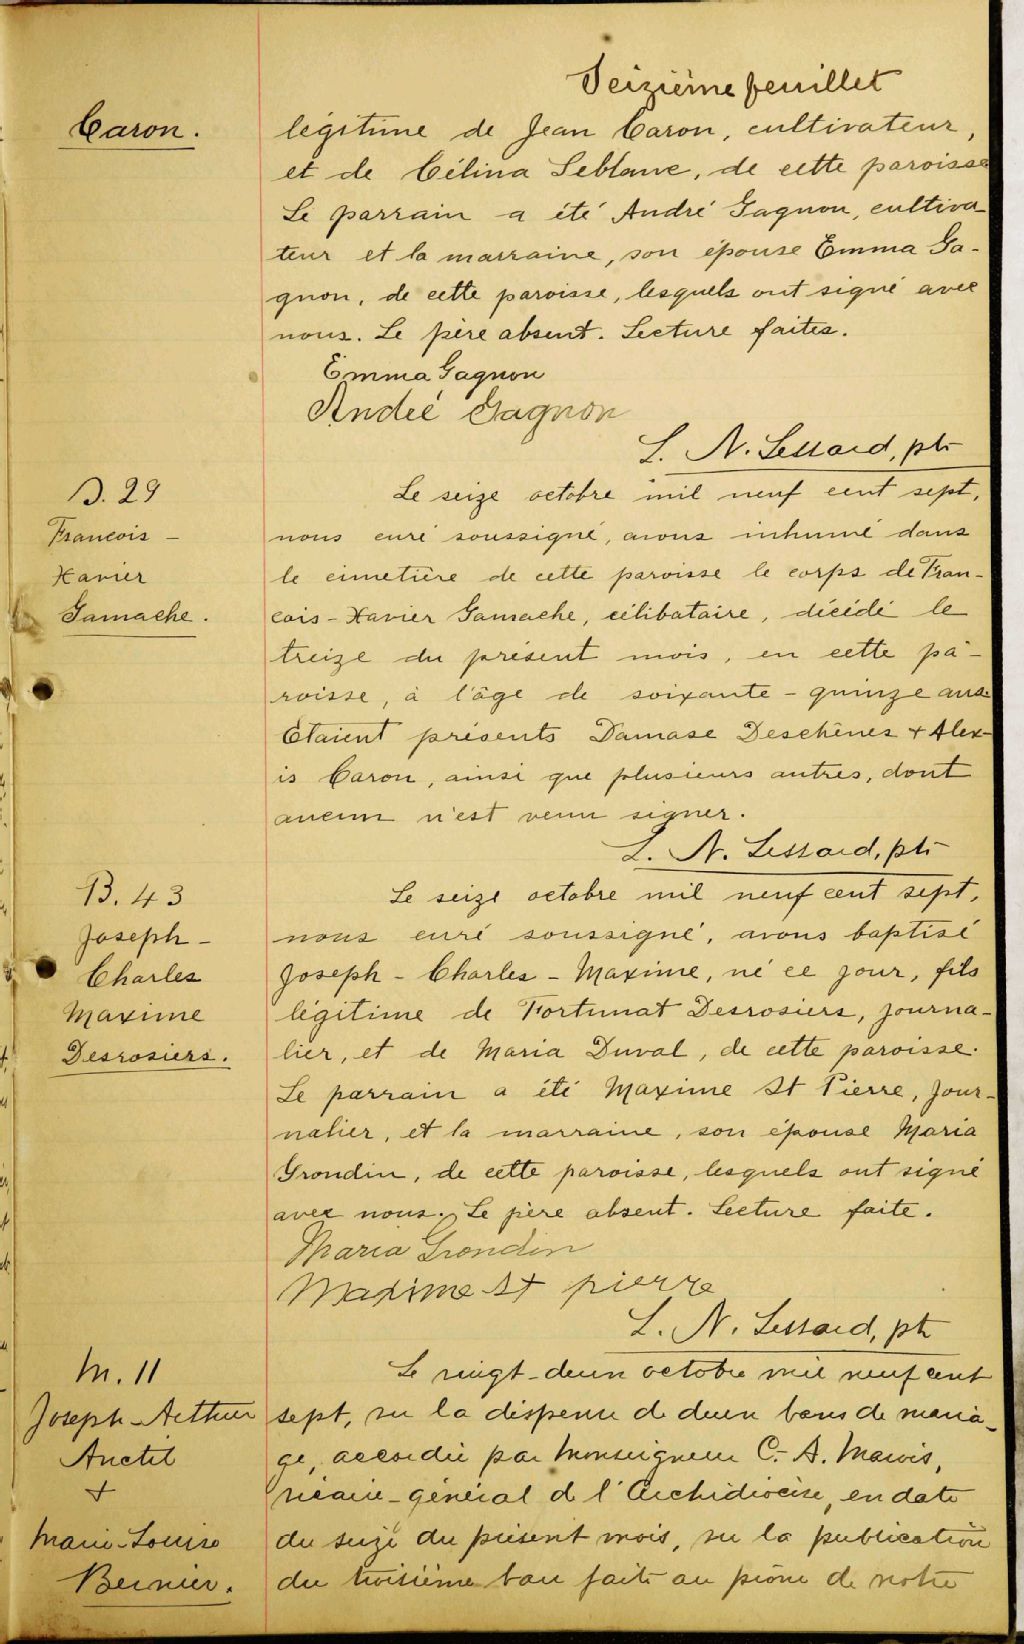 Seizième feuillet
Caron.
légitime de Jean Caron, cultivateur,
et de Célina Leblanc, de cette paroisse
Le parrain a été André Gagnon, cultiva-
teur et la marraine, son épouse Emma Ga-
gnon, de cette paroisse, lesquels ont signé avec
nous. Le père absent. Lecture faites.
Emma Gagnon
André Gagnon
L. N. Lessard, ptr
S. 29
Francois -
Xavier
Gamache.
Le seize octobre mil neuf cent sept,
nous curé soussigné, avons inhumé dans
le cimetière de cette paroisse le corps de Fran-
cois-Xavier Gamache, célibataire, décédé le
treize du présent mois, en cette pa-
roisse, à l'âge de soixante-quinze ans.
Etaient présents Damase Deschênes + Alex-
is Caron, ainsi que plusieurs autres, dont
aucun n'est venu signer.
L. N. Lessard, ptr
B. 43
Joseph-
Charles
Maxime
Desrosiers.
Le seize octobre mil neuf cent sept,
nous curé soussigné, avons baptisé
Joseph-Charles-Maxime, né ce jour, fils
légitime de Fortunat Desrosiers, journa-
lier, et de Maria Duval, de cette paroisse.
Le parrain a été Maxime St Pierre, jour-
nalier, et la marraine, son épouse Maria
Grondin, de cette paroisse, lesquels ont signé
avec nous. Le père absent. Lecture faite.
Maria Grondin
Maxime St pierre
L. N. Lessard, ptr
M. 11
Joseph-Arthur
Anctil
+
Marie-Louise
Bernier.
Le vingt-deux octobre mil neuf cent
sept, vu la dispense de deux bans de maria-
ge, accordée par Monseigneur C.-A. Marois,
vicaire-général de l'Archidiocèse, en date
du seize du présent mois, vu la publication
du troisième ban faite au prône de notre